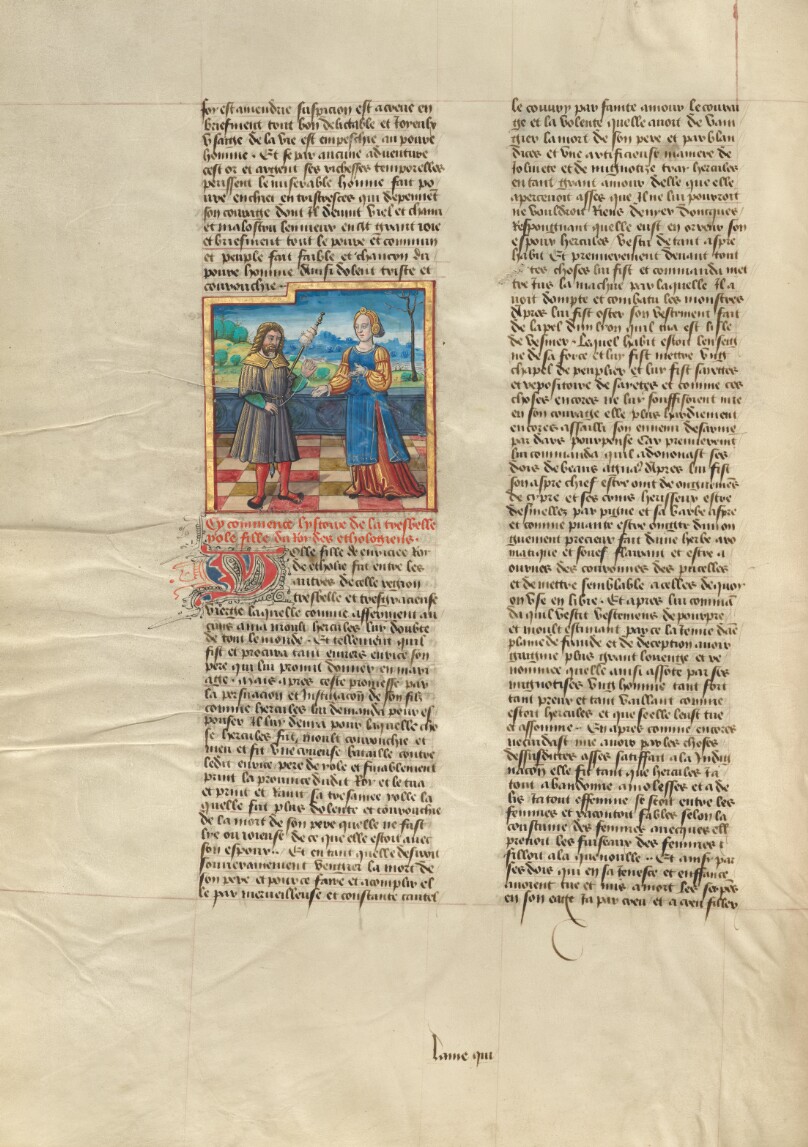 Joy est amendrie suspicion est acreue en
briefment tout bon delictable et Joyeulx
vsaige de la vie est empeschie au poure
homme. Et se par aucune aduenture
cest or et argent ses richesses temporelles
perissent le miserable homme fait po
ure enchiet en tristresces qui depennet
son couraige dont Il deuint viel et
et malostru lenuieux en fit grant ioie
et briefment tout le peupe et commun
et peuple fait fable et chancon du
poure homme Ainsi dolent triste et
courouchie.
Cy commence lystoire de la tresbelle
yole fille du Roy des ethologiens.
Yolle fille de eurice Roy
de etholie fut entre les
autres de celle region
tresbelle et tresgracieuse
vierge laquelle comme afferment au
cuns ama moult hercules luy doubte
de tout le monde. Et tellement quil
fist et procura tant enuers eurice son
pere qui luy promit donner en mari
age. Mais apres ceste promesse par
la persuacion et Instigacon de son filz
comme hercules luy demanda pour es
pouser Il luy denya pour laquelle cho
se hercules fut moult courouchie et
meu et fit vne crueuse bataille contre
ledit eurice pere de yole et finablement
print la prouince dudit Roy et le tua
et print et Rauit sa tresamee yolle la
quelle fut plus dolente et courouchie
de la mort de son pere quelle ne fust
lye ou ioieuse de ce que elle estoit auec
son espoux. Et en tant quelle desiroit
souuerainement vengier la mort de
son pere et pource faire et acomplir el
le par merueilleuse et constante cautel
le couury par fainte amour le courai
ge et la volente quelle auoit de van
gier la mort de son pere et par blan
dices et vne artificieuse maniere de
Joliuete et de mignotize tray hercules
en tant grant amour delle que elle
aperceuoit asses que Il ne luy pourroit
ne vauldroit Riens denyer doncques
Respougnant quelle eust en orreur son
espoux hercules vestu de tant aspre
habit Et premierement deuant tout
tes choses luy fist et commanda met
tre Jus la machue par laquelle Il a
uoit dompte et combatu les monstres
Apres luy fist oster son vestment fait
de la pel dun lyon quil tua en lisle
de vesmer. Lequel habit estoit lenseig
ne de sa force et luy fist mettre vng
chapel de peuplier et luy fist sayettes
et repositoire de sayetes et comme ces
choses encores ne luy souffisoient mie
en son couraige elle plus hardiement
encores assailli son ennemi desarme
par dars pourpense Car premierement
luy commanda quil adonnast ses
dois de beaux agniaux Apres luy fist
son aspre chief estre oint de ongnemens
de cypre et ses crins herisseux estre
desmellez par pigne et sa barbe aspre
et comme puante estre oingte dun on
guement precieux fait dune herbe aro
matique et souef flairant et estre a
ournes des couronnes des pucelles
et de mettre semblable a celles de quoy
on vse en libie. Et apres luy comma
da quil vestit vestemens de pourpre
et moult estimant par ce la ieune dame
plaine de fraude et de deception auoir
gaigne plus grant louenge et re
nommee quelle ainsi assote par ses
mignotises vng homme tant fort
tant preux et tant vaillant comme
estoit hercules et que se elle leust tue
et assomme. En apres comme encores
cuidast nie auoir par les choses
dessusdictes asses satiffait a la Indig
nacon elle fit tant que hercules ia
tout abandonne a molesses et a de
lis ia tout effemine se seoit entre les
femmes et racontoit fables selon la
coustume des femmes auecques ell
prenoit les fuiseaux des femmes et
filloit a la quenoille. Et ainsi par
ses dois qui en sa ieunesse et enffance
auoient tue et mis a mort les serpes
en son eage ia par creu et a creu filler
laine qui